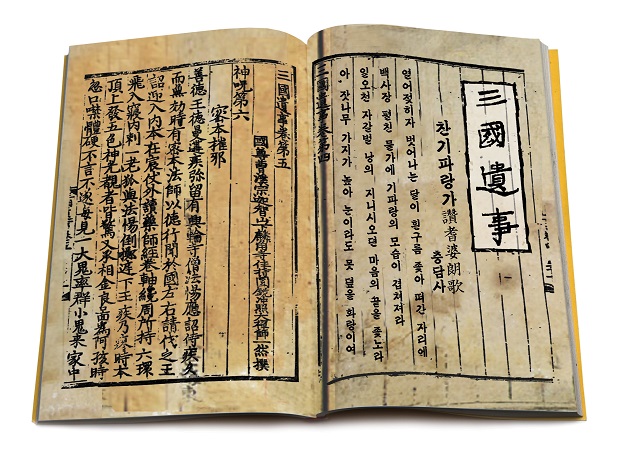 三國遺事
찬기파랑가 讚耆婆朗歌
충담사
열어젖히자 벗어나는 달이 흰구름 좇아 떠간 자리에
백사장 펼친 물가에 기파랑의 모습이 겹쳐져라
일오천 자갈벌 낭의 지니시오던 마음의 끝을 좇노라
아 잣나무 가지가 높아 눈이라도 못 덮을 화랑이여
三國遺事卷第四
三國遺事卷第五
國尊曹溪宗迦智山下麟角寺住持圓鏡冲照大禪師一然撰
神呪第六
密本摧邪
善德王德曼遘疾弥留有興輪寺僧法惕應詔侍疾久
而無効時有密本法師以德行聞於國左右請代之王
詔迎入內本在宸仗外讀藥師經卷軸纔周所持六環
飛入寢內刺一老狐與法惕倒擲庭下王疾乃瘳時本
頂上發五色神光覩者皆驚又承相金良圖爲阿孩時
忽口噤體硬不言不遂每見一大鬼率群小鬼來家中